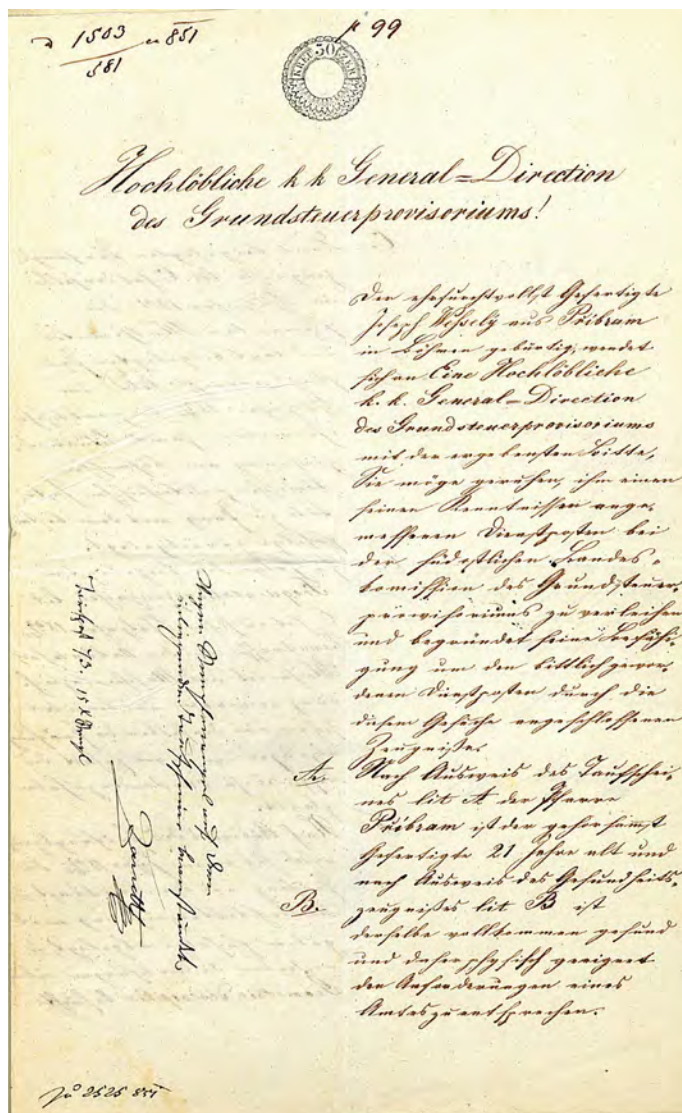 1503 851
581
99
50
KREUZER
Hochlöbliche k k General=Direction
des Grundsteuerprovisoriums!
Der ehrfurchtvollst Gefertigte
Joseph Weſselÿ aus Přibram
in Böhmen gebürtig, wendet
sich an Eine Hochlöbliche
k. k. General=Direction
des Grundsteuerprovisoriums
mit der ergebensten Bitte,
Sie möge geruhen, ihm einen
seinen Kenntnissen ange,
messenen Dienstposten bei
der südostlichen Landes=
komission des Grundsteuer,
provisoriums zu verleihen
und begründet seine Befähi,
gung um den bittlich
Dienstposten durch die
diesem Gesuche angeschlossenen
Zeugnisse.
A. Nach Ausweis des Taufschei,
nes lit A der Pfarre
Přibram ist der gehorsamst
Gefertigte 21 Jahre alt und
nach Ausweis des Gesundheits,
B. zeugnisses lit B ist
derselbe vollkommen gesund
und daher physisch geeignet
den Anforderungen eines
Amtes zu entsprechen.
2525 851